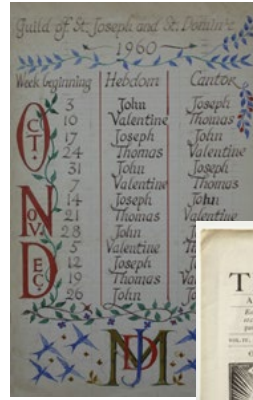 Guild of St. Joseph and St. Dominic
1960
Week beginning Hebdom Cantor
OCT.
3 John Joseph
10 Valentine Thomas
17 Joseph John
24 Thomas Valentine
31 John Joseph
NOV.
7 Valentine Thomas
14 Joseph John
21 Thomas Valentine
28 John
DEC.
5 Valentine
12 Joseph
19 Thomas
26 John
MDJ
T
A